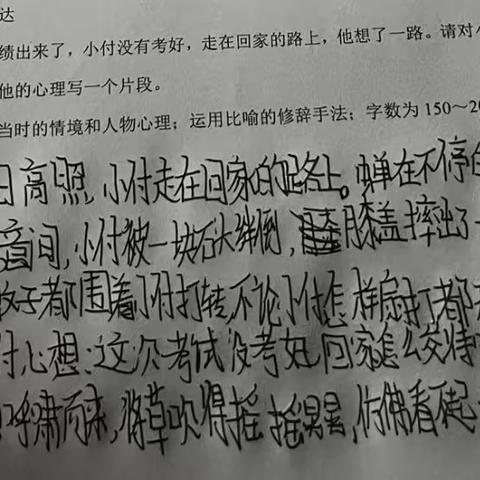 达
绩出来了，小付没有考好，走在回家的路上，他想了一路。请对小
他的心理写一个片段。
当时的情境和人物心理；运用比喻的修辞手法；字数为 150～20
日高照，小付走在回家的路上。蝉在不停的
间，小付被一块石头绊倒，膝盖摔出了一
蚊子都围着小付打转，不论小付怎样扇打都
付心想：这次考试没考好，回家怎么交待
呼啸而来，将草吹得摇摇晃晃，仿佛看不起